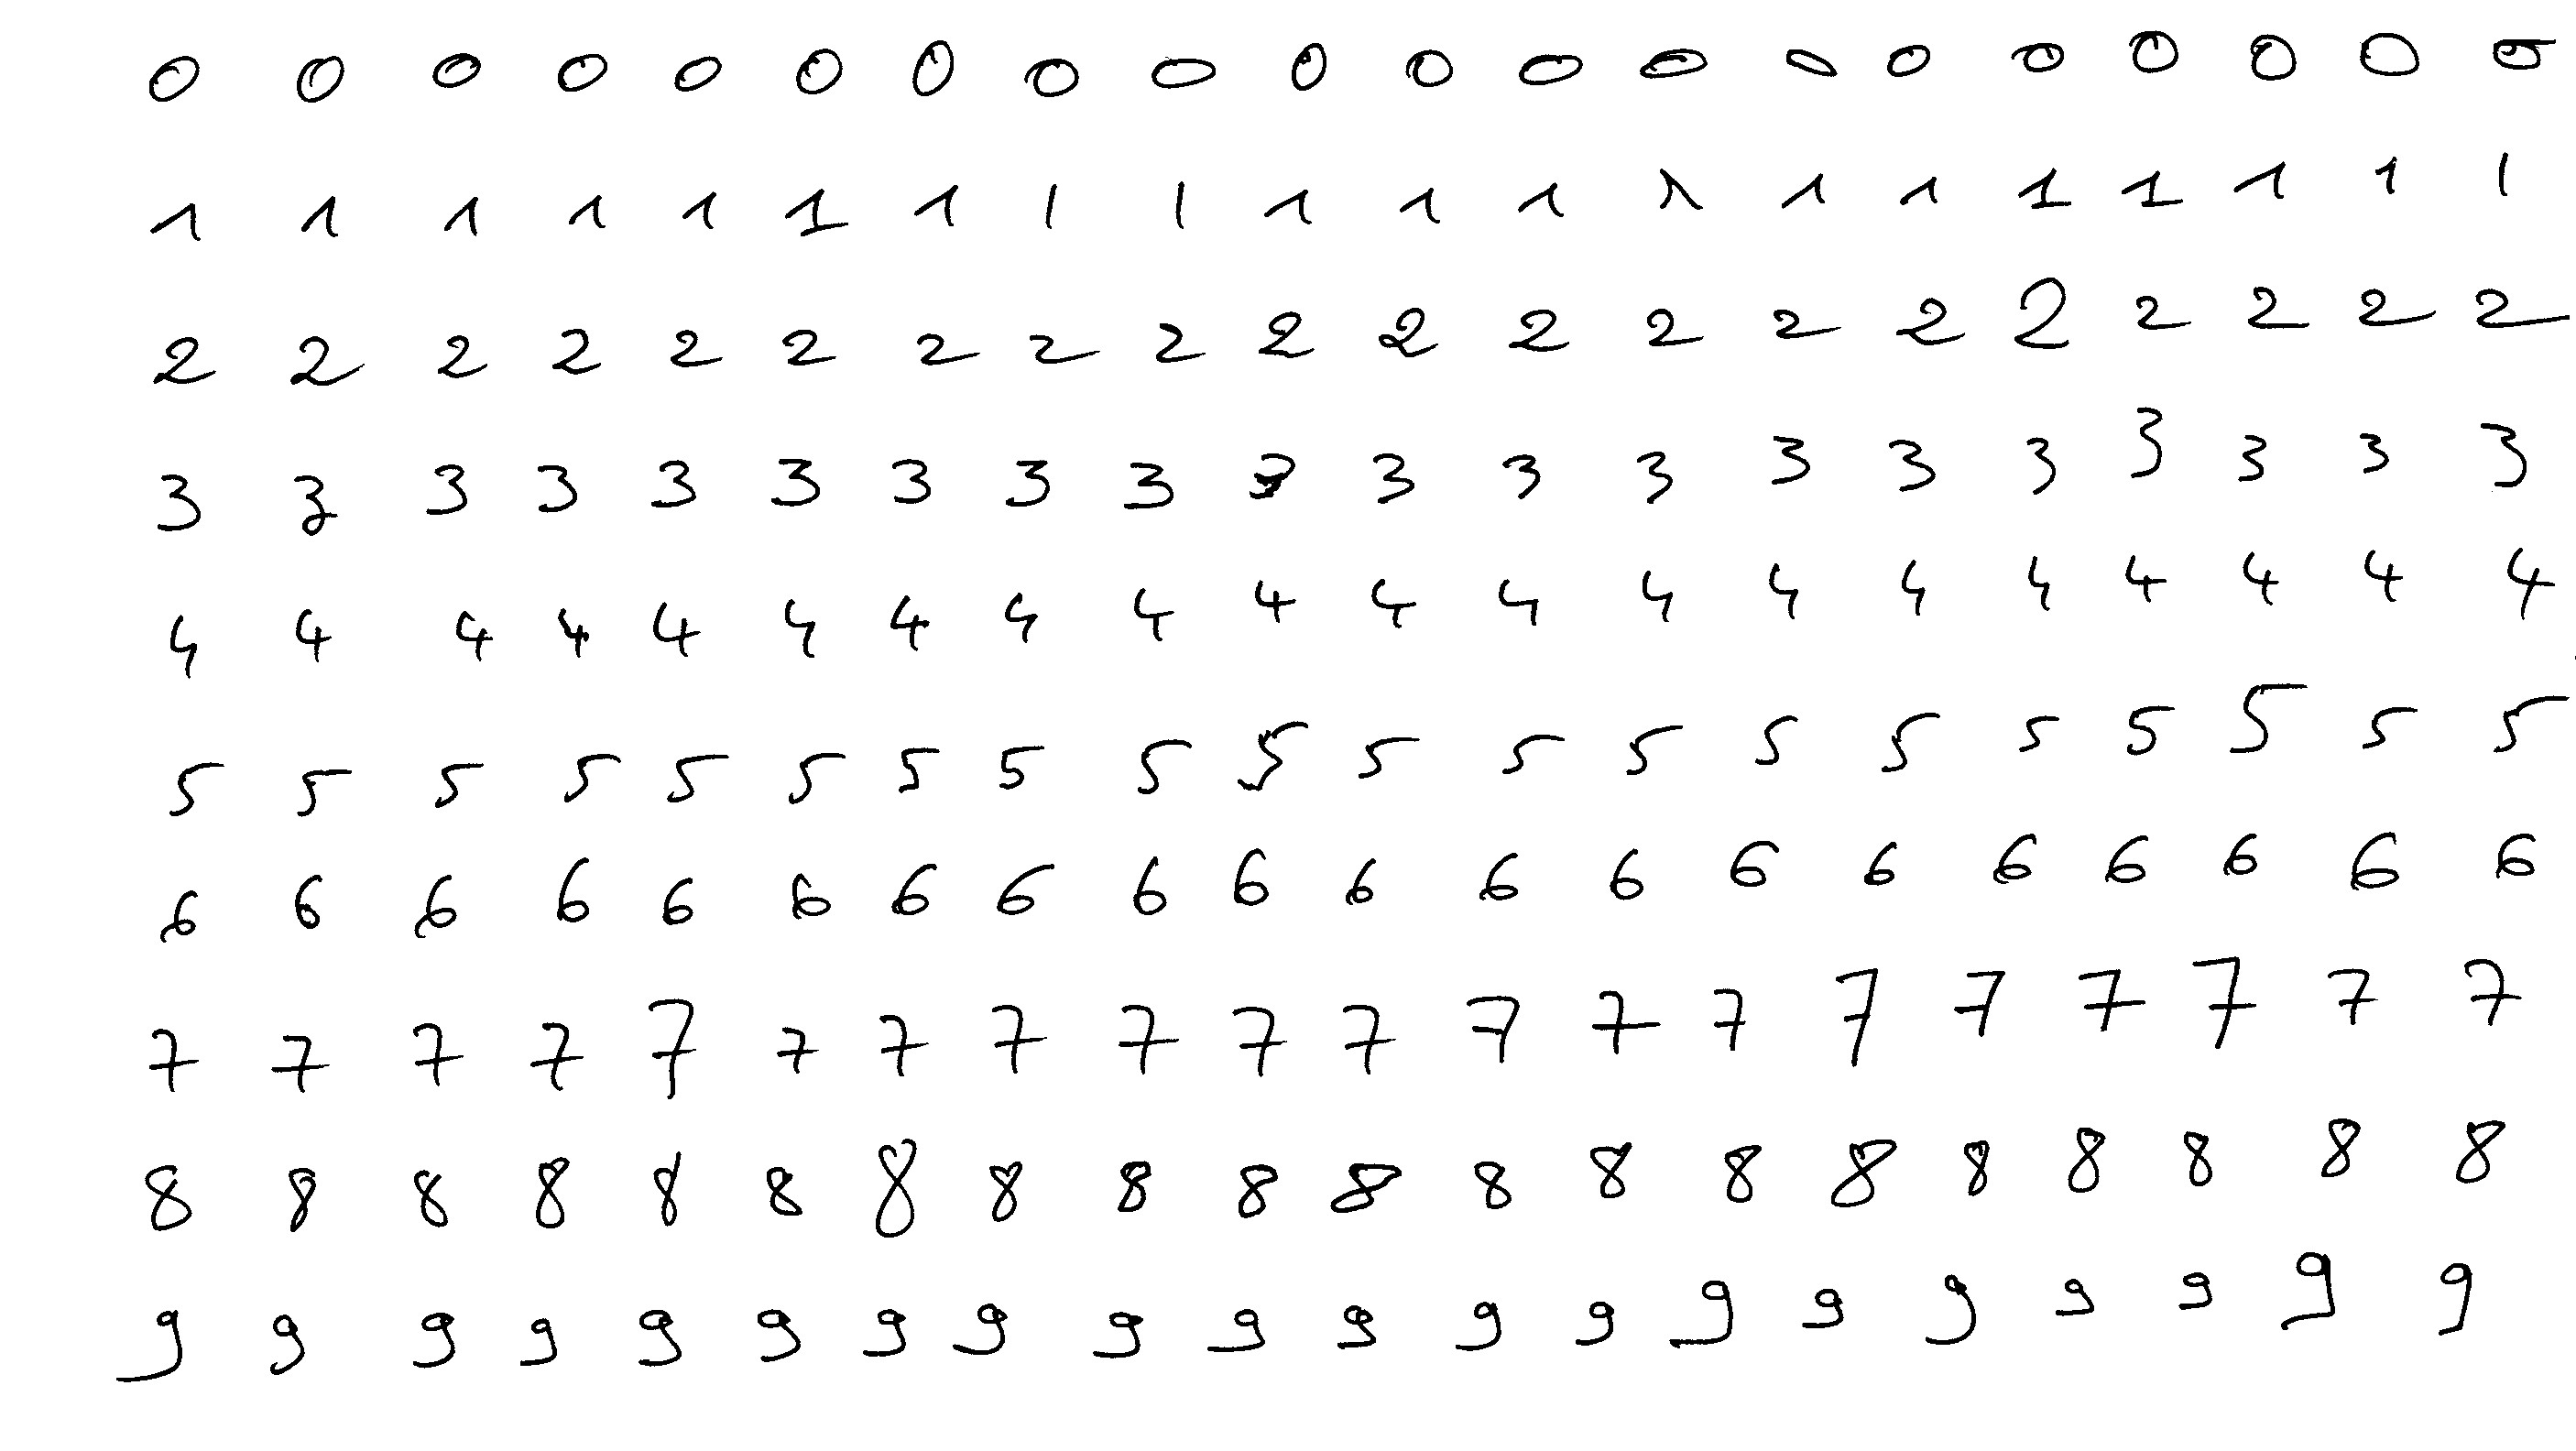 0 0 0 0 0 0 0 0 0 0 0 0 0 0 0 0 0 0 0 0
1 1 1 1 1 1 1 1 1 1 1 1 1 1 1 1 1 1 1 1
2 2 2 2 2 2 2 2 2 2 2 2 2 2 2 2 2 2 2 2
3 3 3 3 3 3 3 3 3 3 3 3 3 3 3 3 3 3 3 3
4 4 4 4 4 4 4 4 4 4 4 4 4 4 4 4 4 4 4 4
5 5 5 5 5 5 5 5 5 5 5 5 5 5 5 5 5 5 5 5
6 6 6 6 6 6 6 6 6 6 6 6 6 6 6 6 6 6 6 6
7 7 7 7 7 7 7 7 7 7 7 7 7 7 7 7 7 7 7 7
8 8 8 8 8 8 8 8 8 8 8 8 8 8 8 8 8 8 8 8
9 9 9 9 9 9 9 9 9 9 9 9 9 9 9 9 9 9 9 9